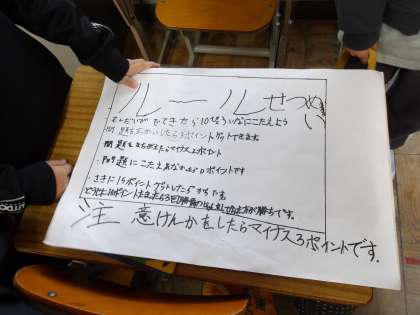 ルールせつめい
もんだいが でてきたら10びょういないにこたえよう
問題をせいかいしたら5ポイントゲットできます。
問題をまちがえたらマイナス2ポイント
問題にこたえれなかったら0ポイントです
さきに15ポイントゲットしたらかちです。
注意けんかをしたらマイナス3ポイントです。